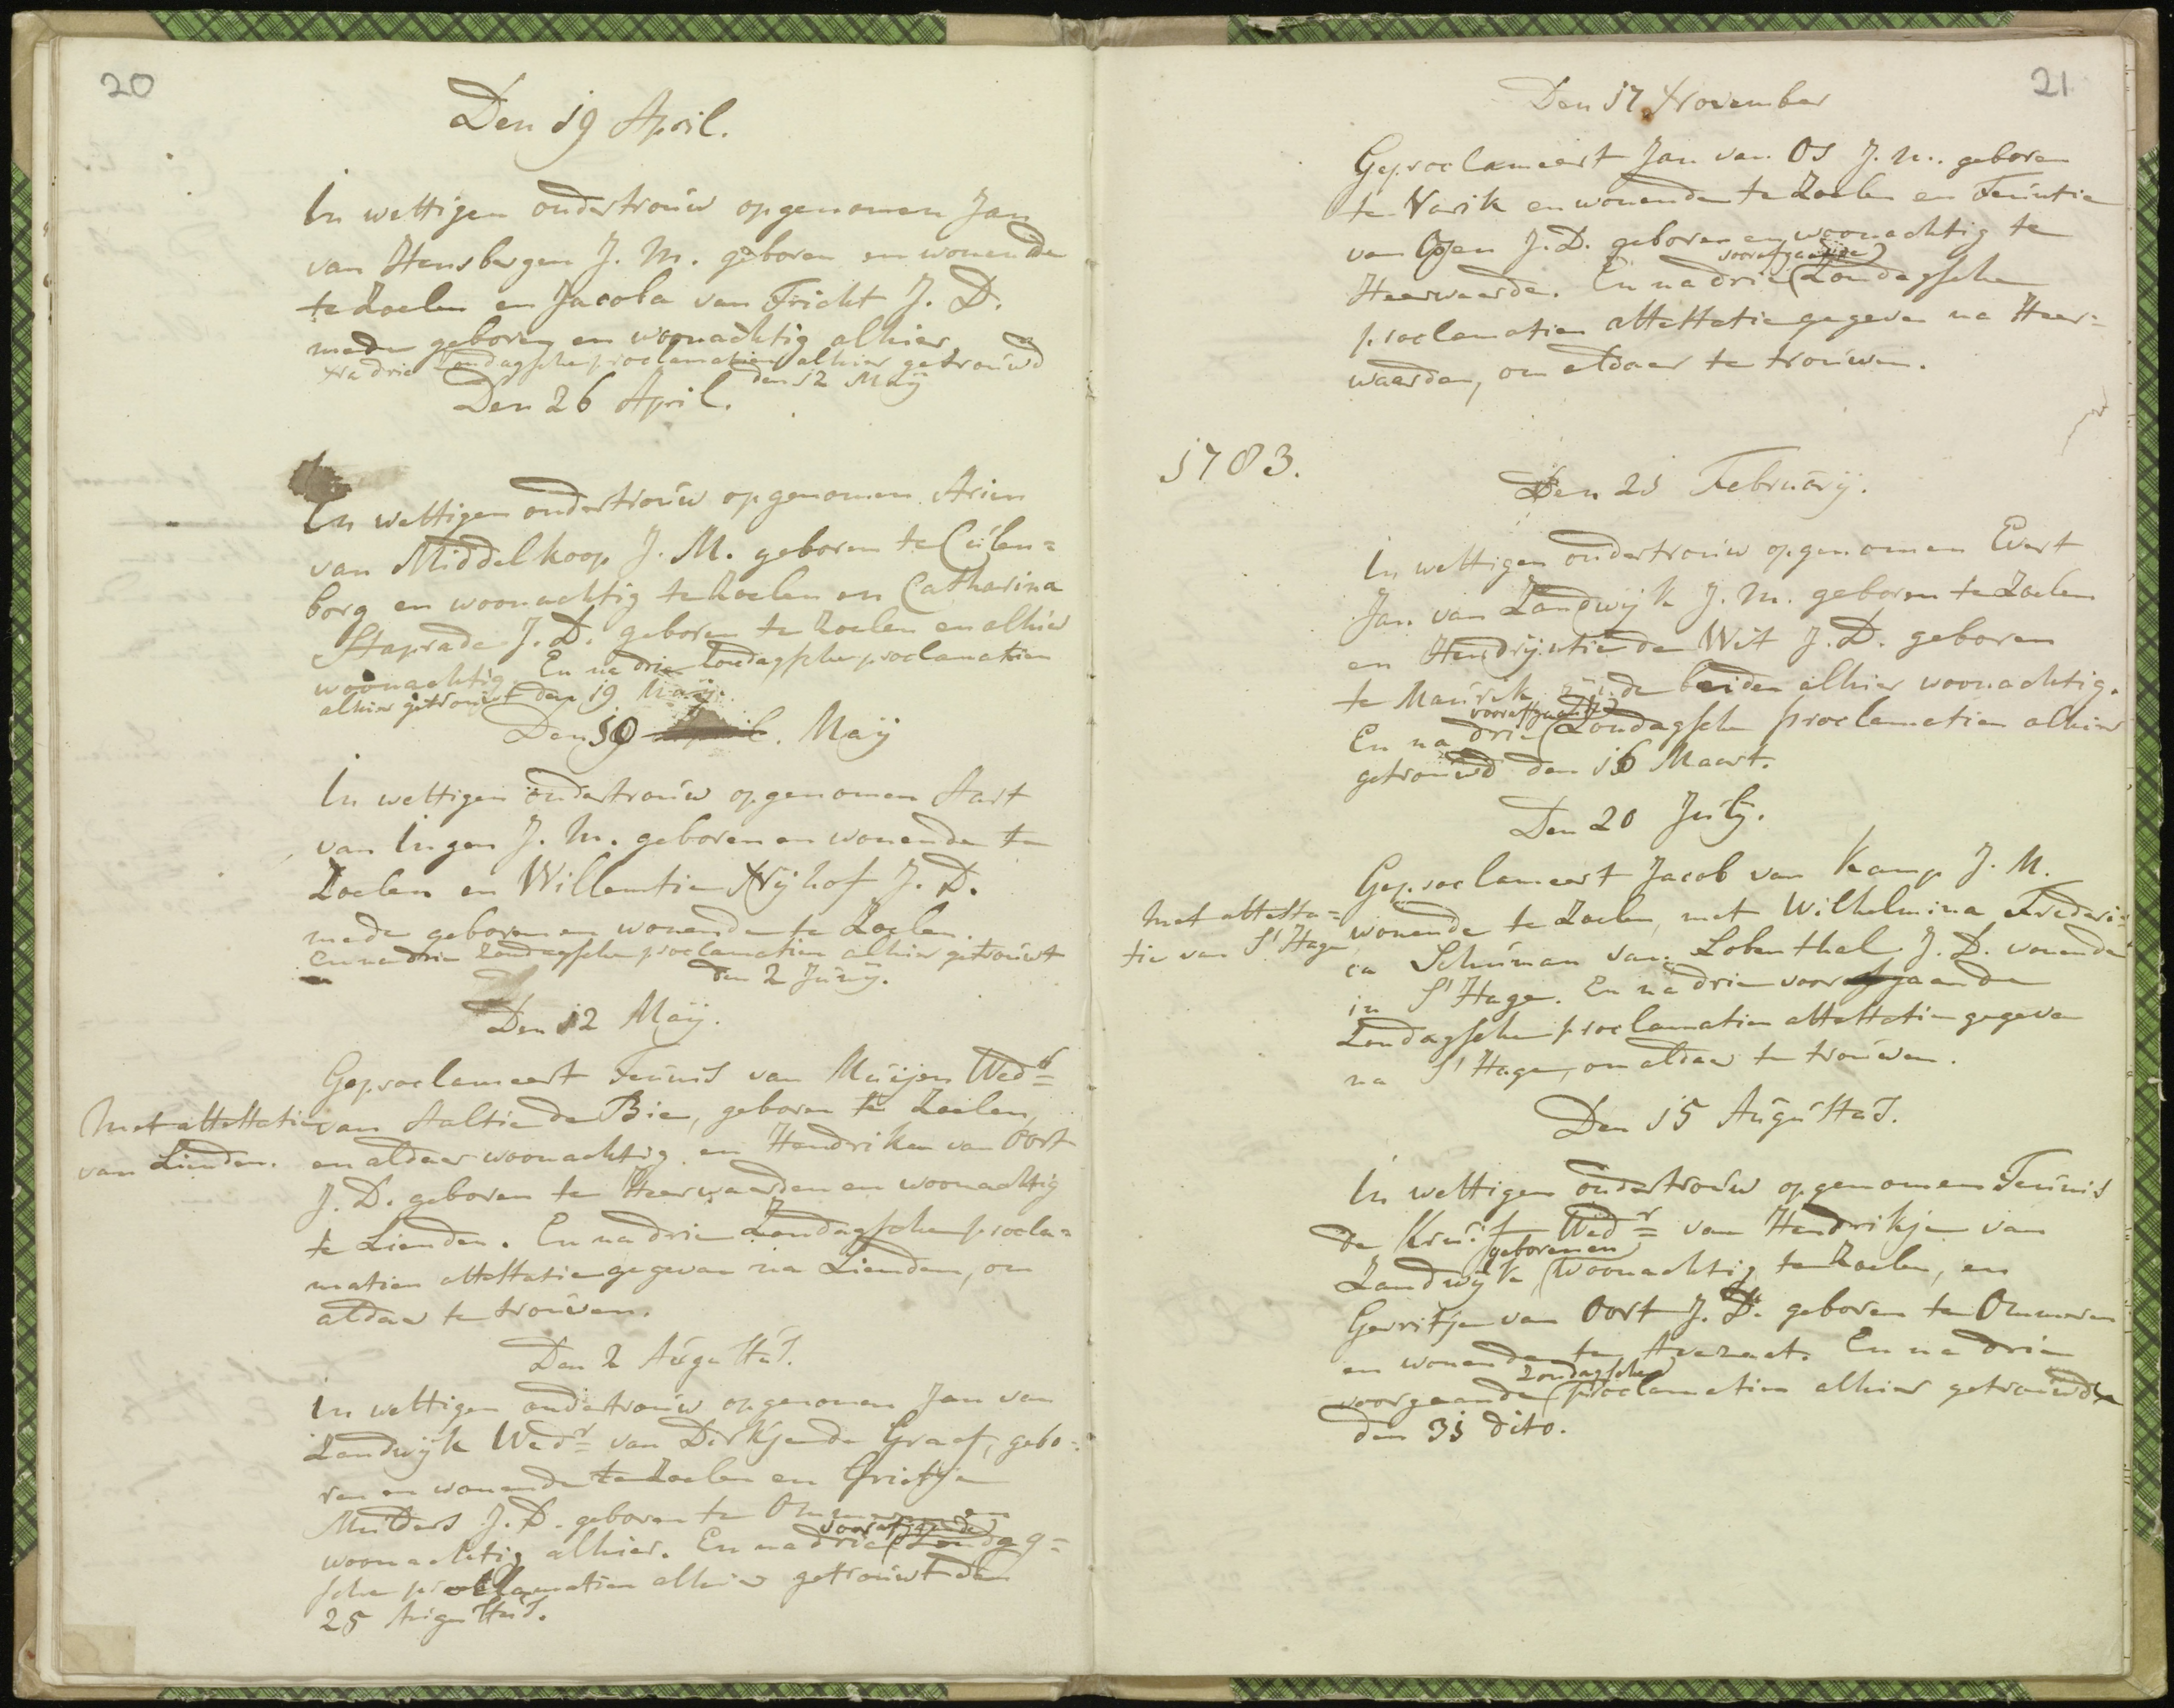 20
Den 19 April.
In wettigen ondertrouw opgenomen Jan
van Hensbergen J. M. geboren en wonende
te Zoelen en Jacoba van Tricht J. D.
mede geboren en woonachtig alhier
Na drie Zondagsche proclamatien alhier getrouwd
den 12 Maÿ
Den 26 April.
In wettigen ondertrouw opgenomen Arien
van Middelkoop J. M. geboren te Culen=
borg en woonachtig te Zoelen en Catharina
Staprade J. D. geboren te Zoelen en alhier
woonachtig. En na drie Zondagsche proclamatien
alhier getrouwt den 19 Maÿ.
Den 10 April. Maÿ
In wettigen ondertrouw opgenomen Aart
van Ingen J. M. geboren en wonende te
Zoelen en Willemtie Nÿhof J. D.
mede geboren en wonende te Zoelen.
En na drie Zondagsche proclamatien alhier getrouwt
den 2 Junÿ.
Den 12 Maÿ.
Geproclameert Teunis van Muijen Wedr
Met attestatie
van Lienden.
van Aaltie de Bie, geboren te Zoelen,
en aldaar woonachtig en Hendriken van Oort
J. D. geboren te Heerwaarden en woonachtig
te Lienden. En na drie Zondagsche procla=
matien attestatie gegeven na Lienden, om
aldaar te trouwen.
Den 2 Augustus.
In wettigen ondertrouw opgenomen Jan van
Zandwÿk Wedr van Dirkje de Graaf, gebo=
ren en wonende te Zoelen en Grietje
Mulders J. D. geboren te Ommeren en
woonachtig alhier. En na drie (voorafgaande) Zondag=
sche proclamatien alhier getrouwt den
25 Augustus.
21
Den 17 November
Geproclameert Jan van Os J. M. geboren
te Varik en wonende te Zoelen en Teuntie
van Osen J. D. geboren en woonachtig te
Heerwaarde. En na drie (voorafgaande) Zondagsche
proclamatien attestatie gegeven na Heer=
waarden, om aldaar te trouwen.
1783.
Den 21 Februarÿ.
In wettigen ondertrouw opgenomen Evert
Jan van Zandwÿk J. M. geboren te Zoelen
en Hendrÿntie de Wit J. D. geboren
te Maurik zÿnde beiden alhier woonachtig.
En na drie (voorafgaande) Zondagsche proclamatien alhier
getrouwd den 16 Maart.
Den 20 Julÿ.
Geproclameert Jacob van Kamp J. M.
Met attesta=
tie van S'Hage
wonende te Zoelen, met Wilhelmina Frederi=
ca Schuman van Lobenthal J. D. wonende
in S'Hage. En na drie voorafgaande
Zondagsche proclamatien attestatie gegeven
na S'Hage, om aldaar te trouwen.
Den 15 Augustus.
In wettigen ondertrouw opgenomen Teunis
de Kruif Wedr van Hendrikje van
Zandwÿk, (geboren en) woonachtig te Zoelen, en
Gerritje van Oort J. D. geboren te Ommeren
en wonende te Avezaat. En na drie
voorgaande (Zondagsche) proclamatien alhier getrouwd
den 31 dito.